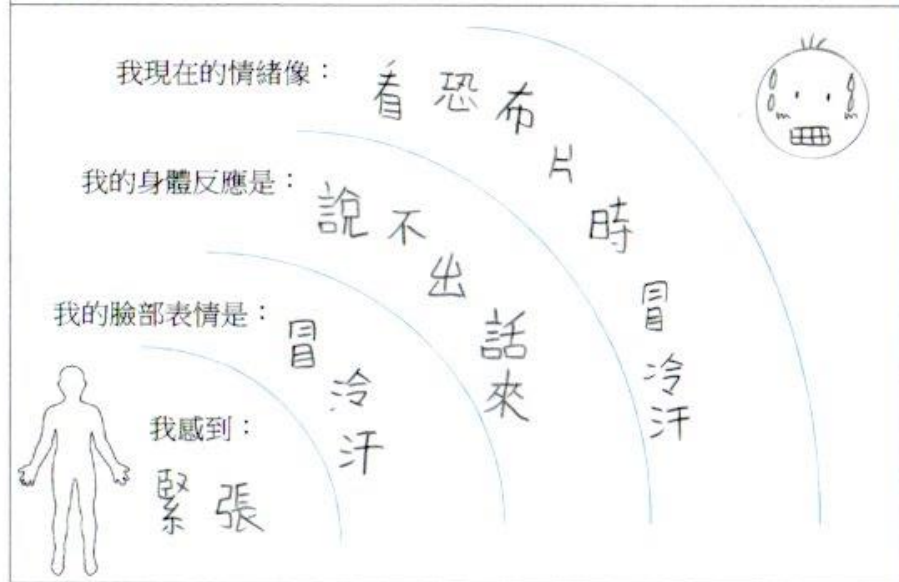 我現在的情緒像：看恐布片時冒冷汗
我的身體反應是：說不出話來
我的臉部表情是：冒冷汗
我感到：
緊張